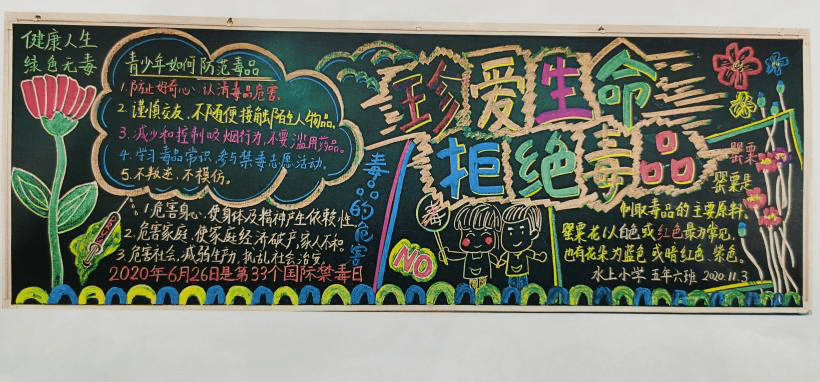 健康人生
绿色无毒
青少年如何防范毒品
1.防止好奇心、认清毒品危害。
2.谨慎交友,不随便接触陌生人物品。
3.减少和控制吸烟行为,不要滥用药品。
4.学习毒品常识,参与禁毒志愿活动。
5.不叛逆.不模仿。
毒品的危害
1.危害身心、使身体及精神产生依赖性
2.危害家庭,使家庭经济破产,家人不和。
3.危害社会、减弱生产力,扰乱社会治安。
2020年6月26日是第33个国际禁毒日
珍爱生命
拒绝毒品
毒
NO
罂粟
罂粟是
制取毒品的主要原料、
罂粟花以白色或红色最为常见,
也有花朵为蓝色或暗红色、紫色。
水上小学 五年六班 2020.11.3